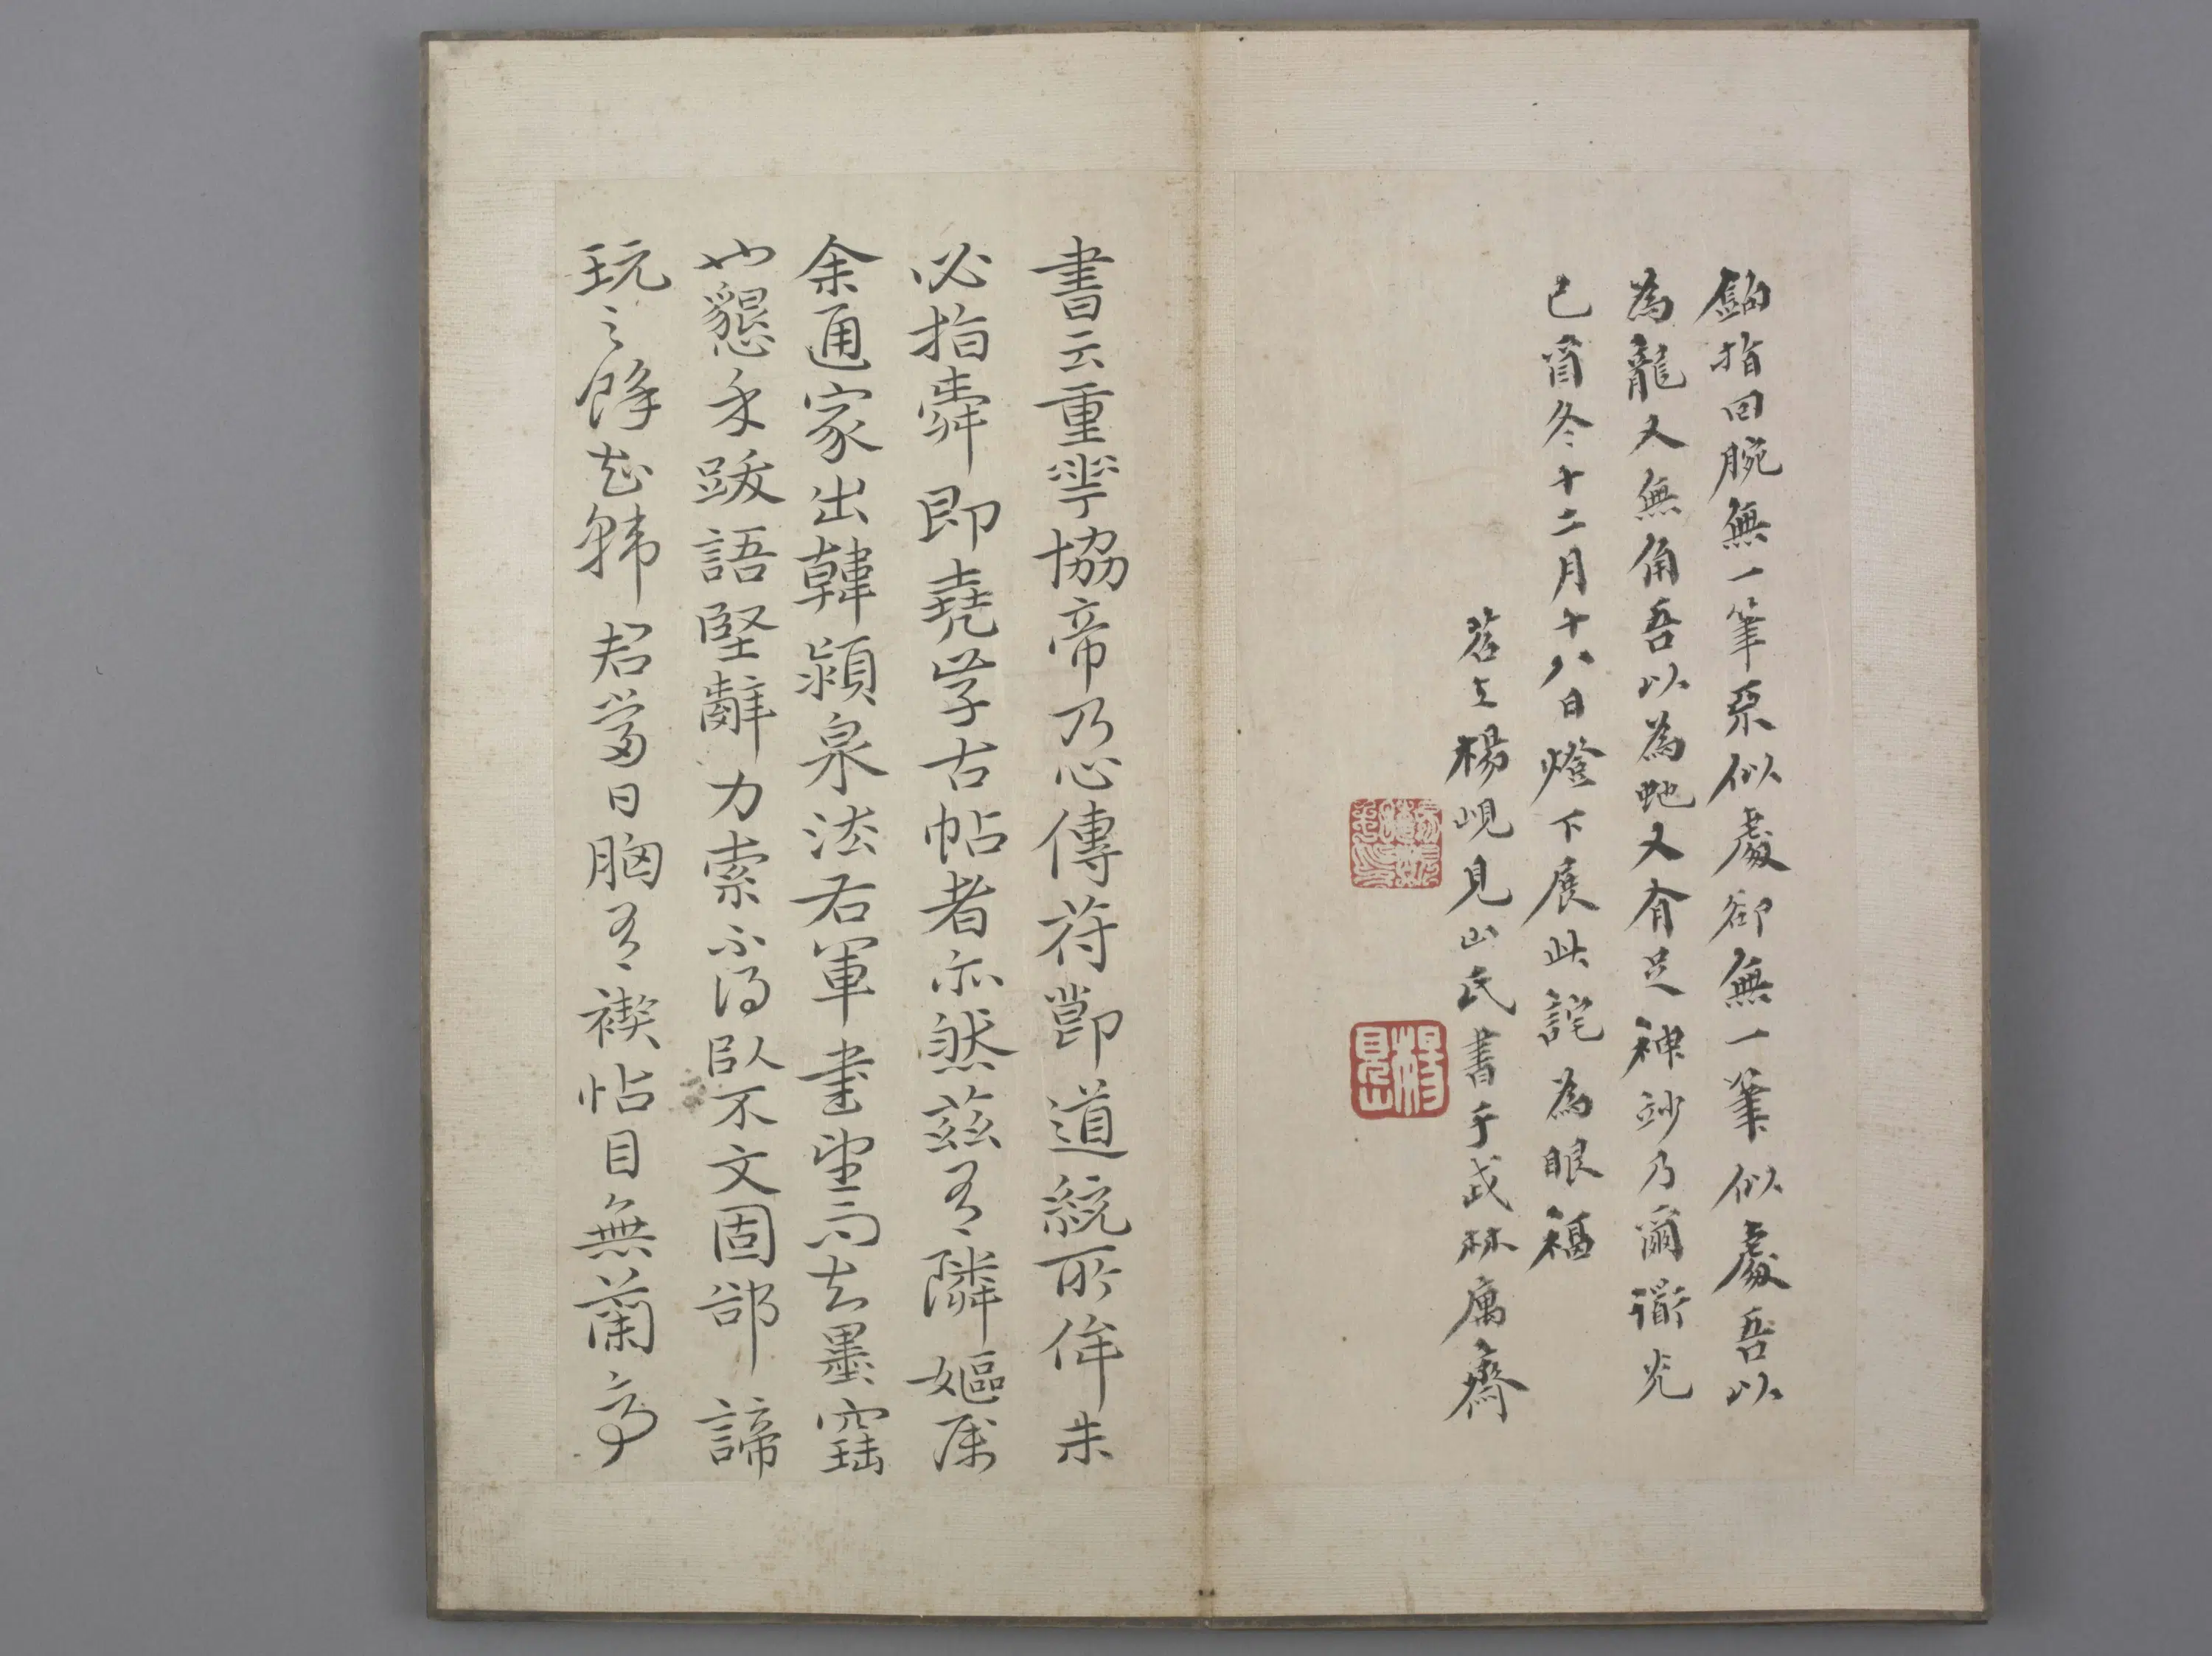 鉤指回腕無一筆不似處卻無一筆似處吾以
為龍又無角吾以為虵又有足神妙乃爾道光
己酉冬十二月十八日燈下展此詫為眼福
苕上楊峴見山氏書于武林寓齋
楊見山
書云重華協帝乃心傳苻節道統所侔朱
必指舜即堯學古帖者亦然茲有隣嫗屬
余通家出韓潁泉法右軍書望而知墨寶
也懇求跋語堅辭力索不得臥不文固卻諦
玩之餘知韓君當日胸有禊帖目無蘭亭